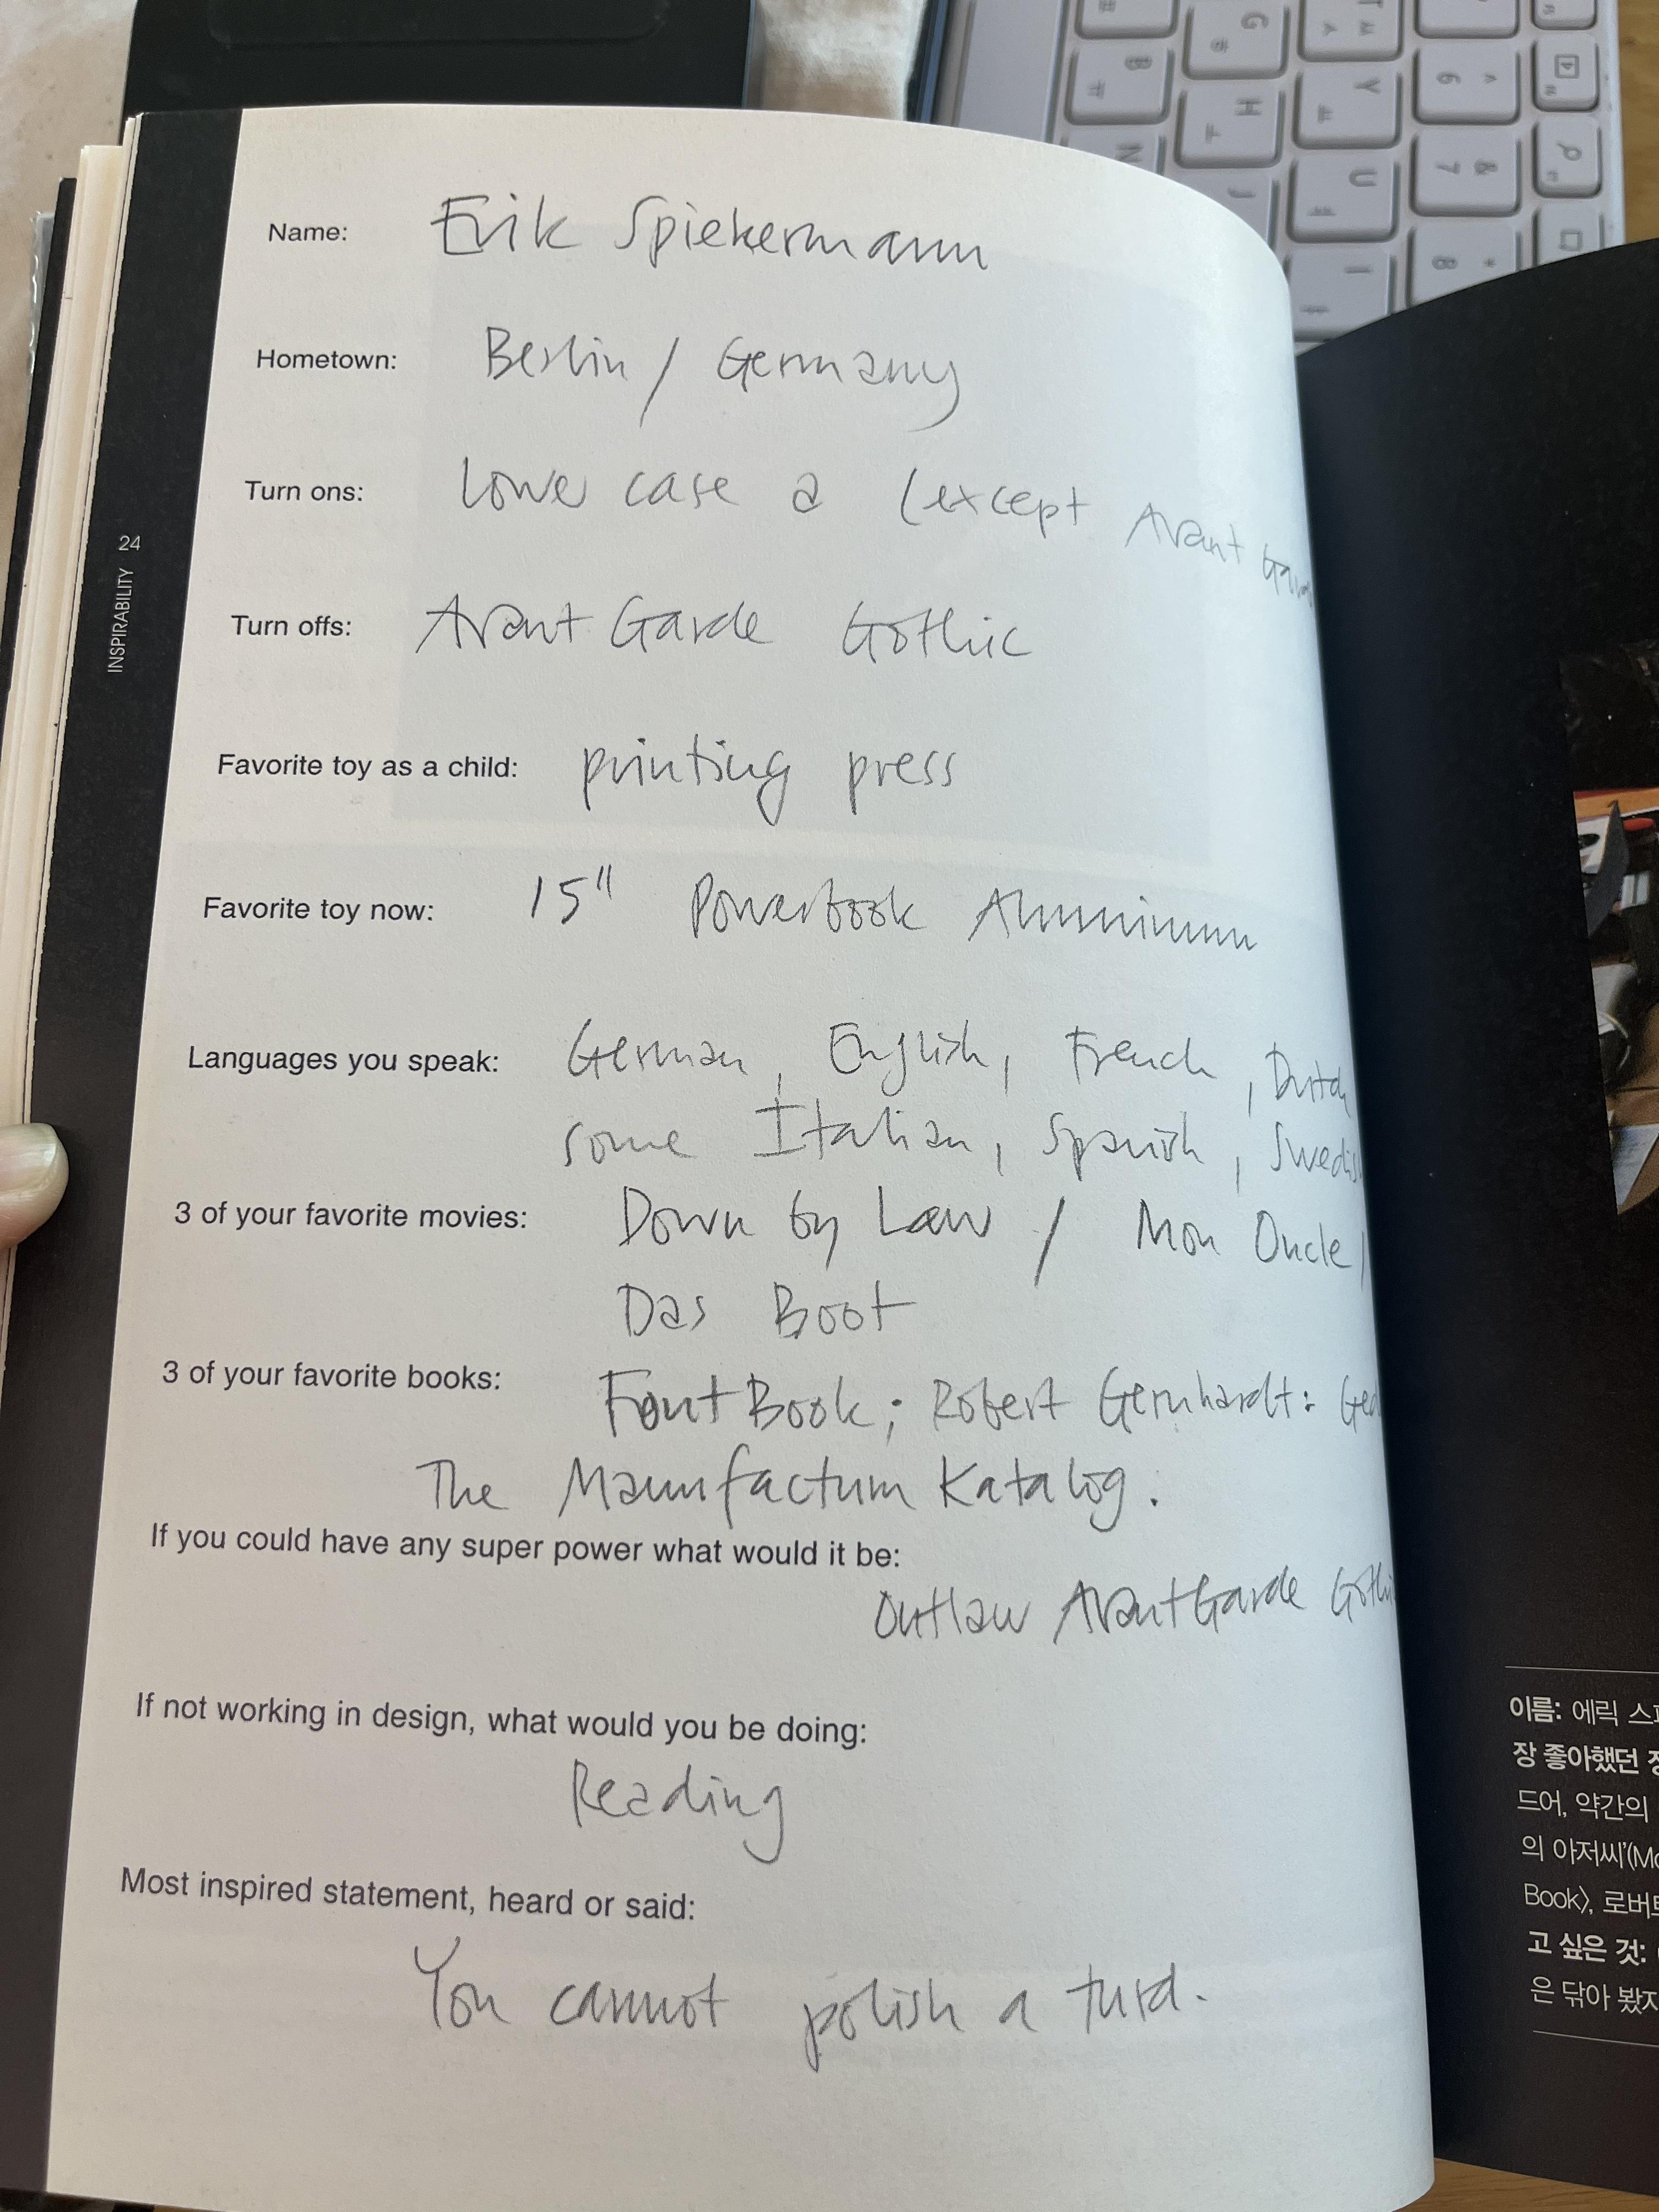 Name: Erik Spiekermann
Hometown: Berlin / Germany
Turn ons: lower case a (except Avant
Turn offs: Avant Garde Gothic
Favorite toy as a child: printing press
Favorite toy now: 15" Powerbook Aluminium
Languages you speak: German, English, French, Dutch
some Italian, Spanish, Swedis
3 of your favorite movies: Down by Law / Mon Oncle/
Das Boot
3 of your favorite books: FontBook; Robert Gernhardt: Ged
The Manufactum Katalog.
If you could have any super power what would it be:
Outlaw AvantGarde Gothi
If not working in design, what would you be doing:
Reading
Most inspired statement, heard or said:
You cannot polish a turd.
INSPIRABILITY 24
이름: 에릭 스피
장 좋아했던
드어, 약간의
의 아저씨'(Mo
Book〉, 로버트
고 싶은 것:
은 닦아 봤자
G
T
B
H
Y
6
^
N
J
U
7
&
I
8
*